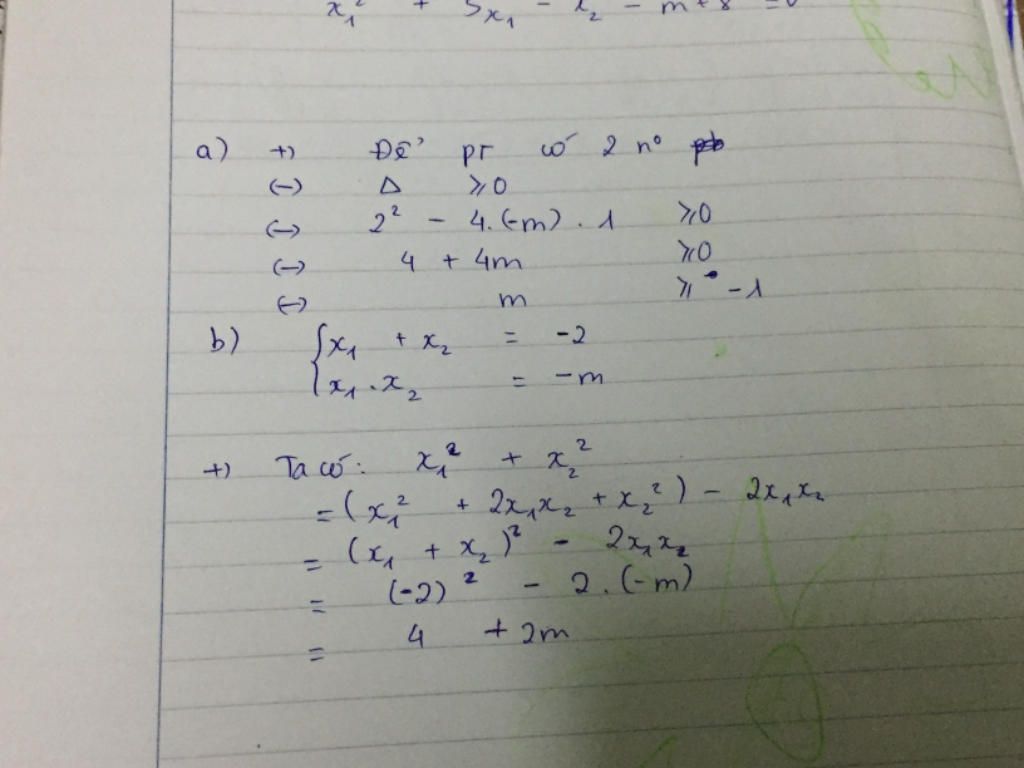 x₁² + 5x₁ - x₂ - m + 8 = 0
a) +) Để pt có 2 n⁰
(→) Δ ⩾0
(→) 2² - 4.(-m) . 1 ⩾0
(→) 4 + 4m ⩾0
(→) m ⩾ -1
b) { x₁ + x₂ = -2
x₁ . x₂ = -m
+) Ta có: x₁² + x₂²
= (x₁² + 2x₁x₂ + x₂²) - 2x₁x₂
= (x₁ + x₂)² - 2x₁x₂
= (-2)² - 2.(-m)
= 4 + 2m